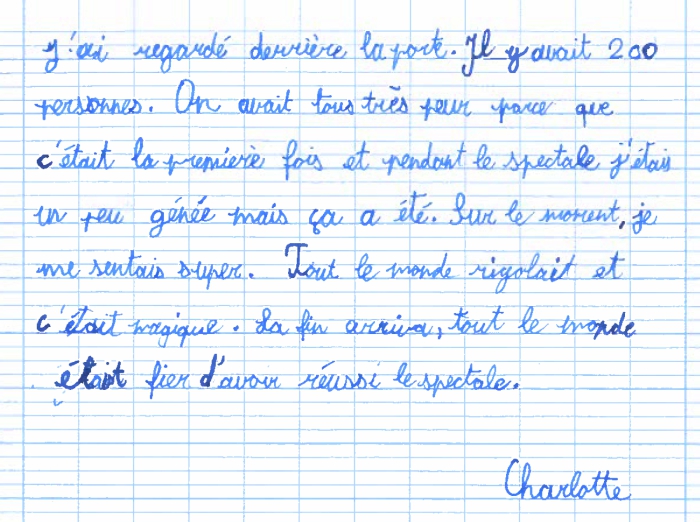 j'ai regardé derrière la porte. Il y avait 200
personnes. On avait tous très peur parce que
c'était la première fois et pendant le spectale j'étais
un peu génée mais ça a été. Sur le moment, je
me sentais super. Tout le monde rigolait et
c'était magique. La fin arriva, tout le monde
était fier d'avoir réussi le spectale.
Charlotte